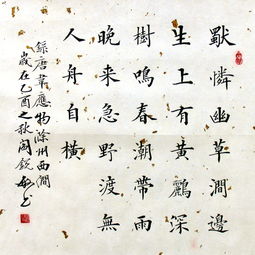 獸憐幽草澗邊
生上有黃鸝深
樹鳴春潮帶雨
晚来急野渡無
人舟自橫
錄唐韋應物滁州西澗
歲在乙酉之秋